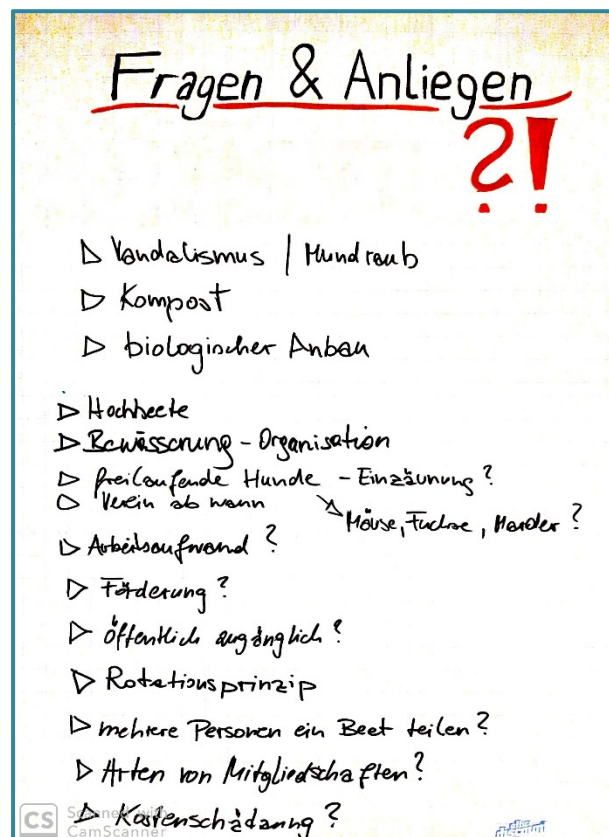 Fragen & Anliegen
?!
▷ Vandalismus | Mundraub
▷ Kompost
▷ biologischer Anbau
▷ Hochbeete
▷ Bewässerung - Organisation
▷ freilaufende Hunde - Einzäunung?
▷ Verein ab wann
↘ Mäuse, Füchse, Marder?
▷ Arbeitsaufwand?
▷ Förderung?
▷ öffentlich zugänglich?
▷ Rotationsprinzip
▷ mehrere Personen ein Beet teilen?
▷ Arten von Mitgliedschaften?
▷ Kostenschätzung?
CS Scanned with
CamScanner